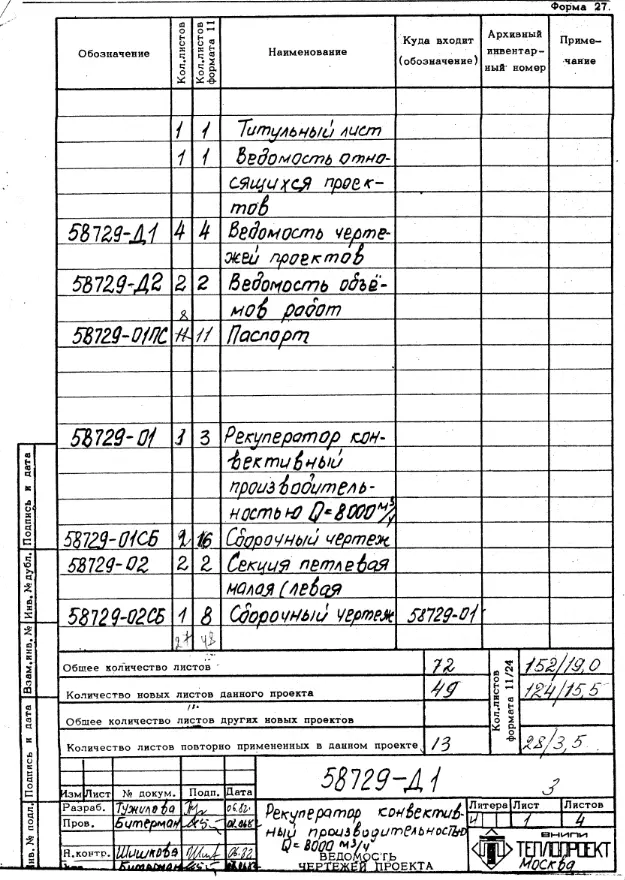 Форма 27.
Обозначение Кол.листов Кол.листов формата 11 Наименование Куда входит (обозначение) Архивный инвентар- ный номер Приме- чание
1 1 Титульный лист
1 1 Ведомость отно-
сящихся проек-
тов
58729-Д1 4 4 Ведомость черте-
жей проектов
58729-Д2 2 2 Ведомость объё-
8 мов работ
58729-01ПС 11 11 Паспорт
58729-01 1 3 Рекуператор кон-
вективный
производитель-
ностью Q=8000 м3/ч
58729-01СБ 2 16 Сборочный чертеж
58729-02 2 2 Секция петлевая
малая (левая
58729-02СБ 1 8 Сборочный чертеж 58729-01
27 48
Общее количество листов 72 152/19,0
Количество новых листов данного проекта 49 124/15,5
Общее количество листов других новых проектов
Количество листов повторно примененных в данном проекте 13 28/3,5
Кол.листов формата 11/24
Инв. № подл. Подпись и дата Взам.инв. № Инв.№дубл. Подпись и дата
58729-Д1 3
Изм Лист № докум. Подп. Дата
Разраб. Тужилова 06.82
Пров. Битерман
Н.контр. Шишкова 06.82
Битерман
Рекуператор конвектив-
ный производительностью
Q=8000 м3/ч
ВЕДОМОСТЬ
ЧЕРТЕЖЕЙ ПРОЕКТА
Литера Лист Листов
И 1 4
ВНИПИ
ТЕПЛОПРОЕКТ
Москва